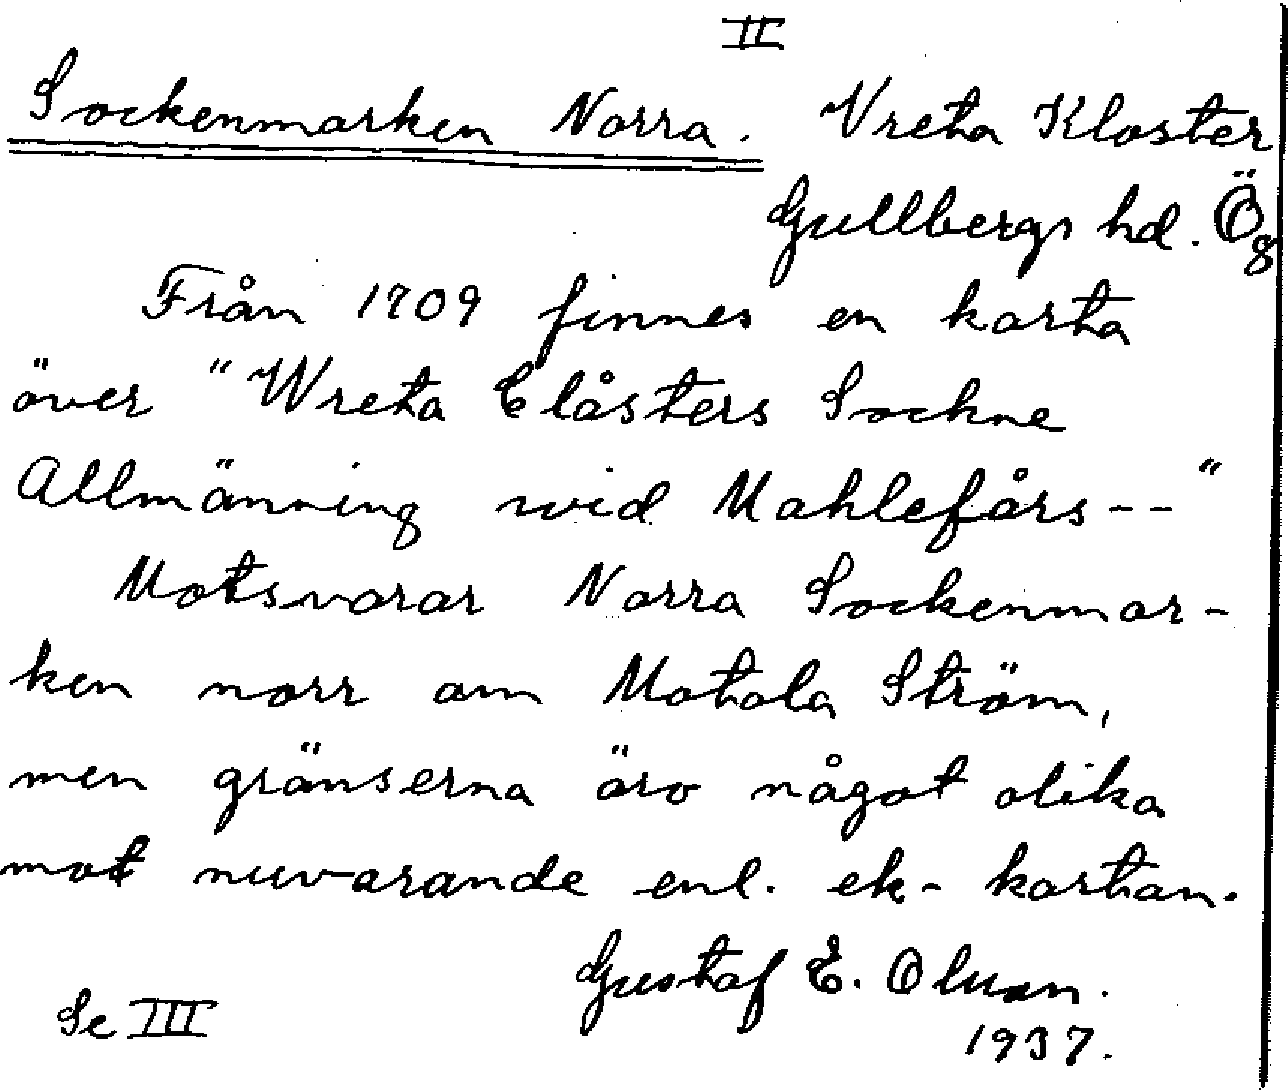 II
Sockenmarken Norra. Vreta Kloster
Gullbergs hd. Ög
Från 1709 finnes en karta
över "Wreta Clåsters Sockne
Allmänning wid Mahlefårs--"
Motsvarar Norra Sockenmar-
ken norr om Motala Ström,
men gränserna äro något olika
mot nuvarande enl. ek-kartan.
Gustaf E. Olsson.
Se III
1937.